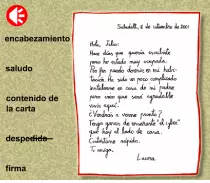 Sabadell, 8 de setiembre de 2001
encabezamiento
Hola, Julia:
Hace días que quería escribirte
pero he estado muy ocupada.
saludo
Por fin puedo dormir en mi habi-
tación. Ha sido un poco complicado
instalarme en casa de mi padre
contenido de
la carta
pero creo que será agradable
vivir aquí.
¿Vendrás a verme pronto?
Tengo ganas de enseñarte
que hay al lado de casa.
despedida
Cuéntame rápido.
Tu amiga,
firma
Laura